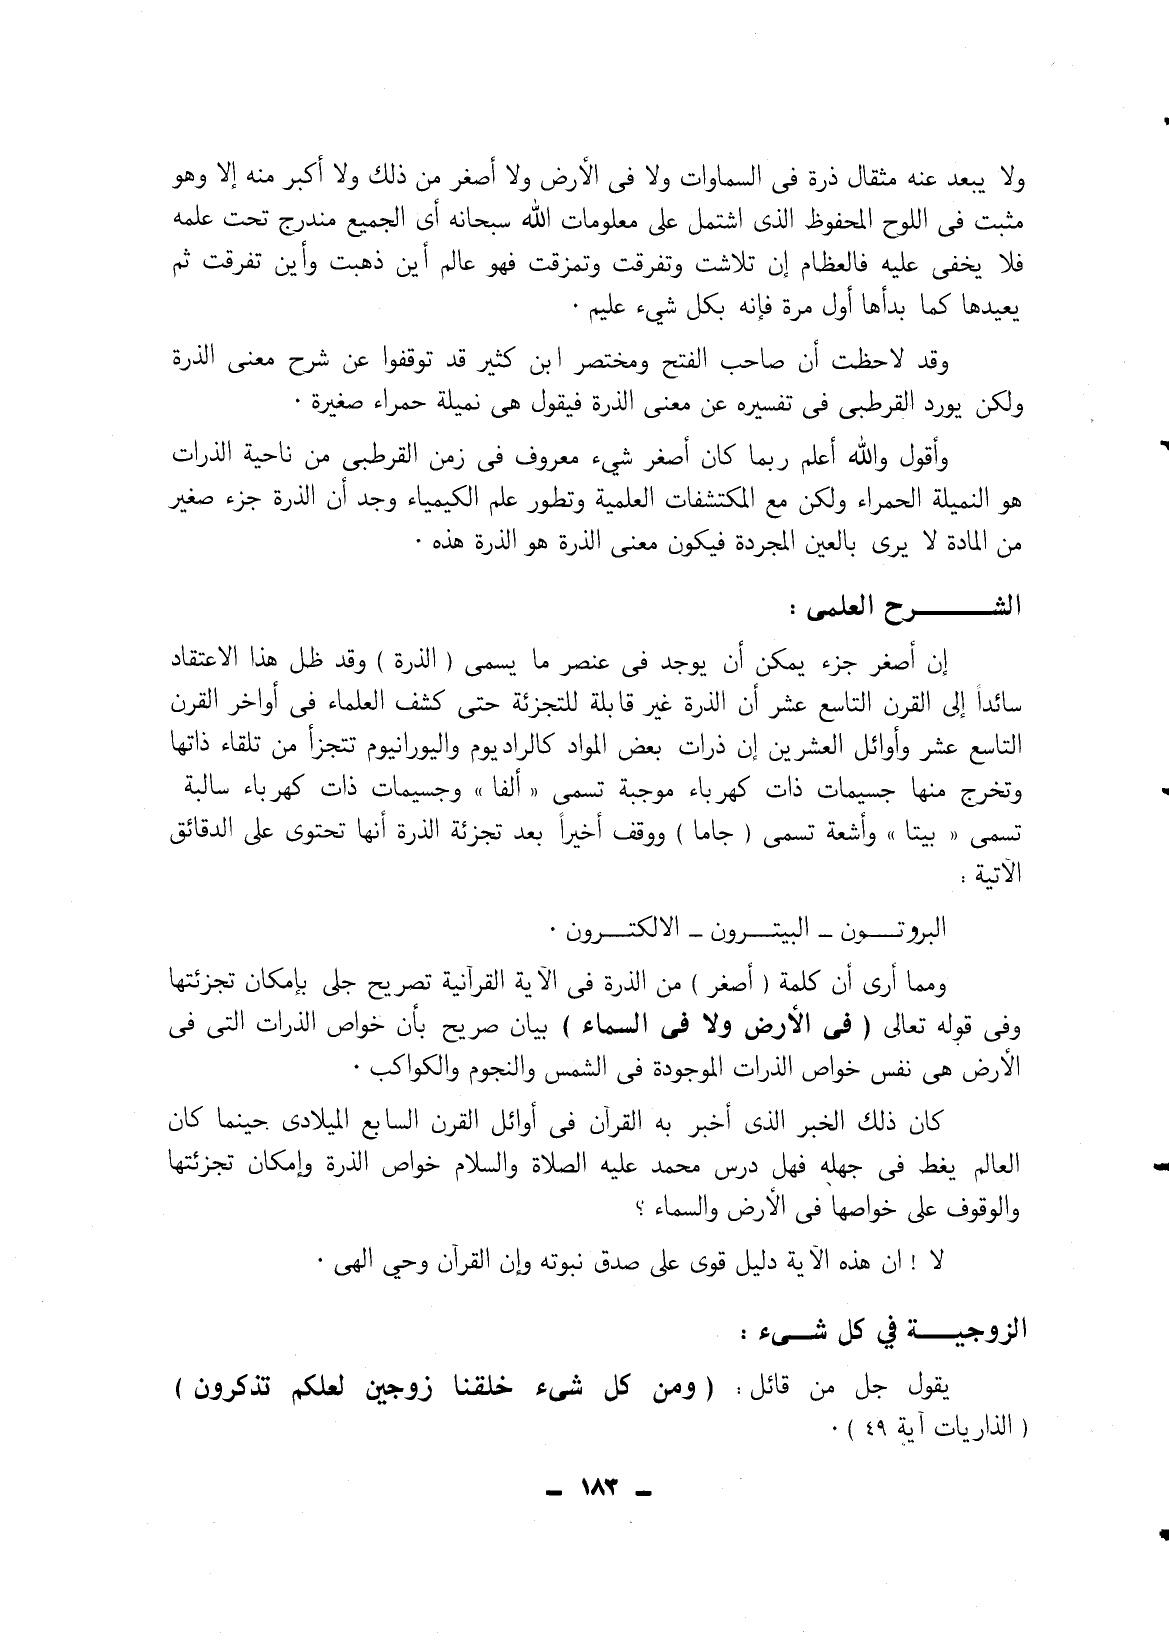 ولا يبعد عنه مثقال ذرة فى السماوات ولا فى الأرض ولا أصغر من ذلك ولا أكبر منه إلا وهو
مثبت فى اللوح المحفوظ الذى اشتمل على معلومات الله سبحانه أى الجميع مندرج تحت علمه
فلا يخفى عليه فالعظام إن تلاشت وتفرقت وتمزقت فهو عالم أين ذهبت وأين تفرقت ثم
يعيدها كما بدأها أول مرة فإنه بكل شيء عليم ٠
وقد لاحظت أن صاحب الفتح ومختصر ابن كثير قد توقفوا عن شرح معنى الذرة
ولكن يورد القرطبى فى تفسيره عن معنى الذرة فيقول هى نميلة حمراء صغيرة ٠
وأقول والله أعلم ربما كان أصغر شيء معروف فى زمن القرطبى من ناحية الذرات
هو النميلة الحمراء ولكن مع المكتشفات العلمية وتطور علم الكيمياء وجد أن الذرة جزء صغير
من المادة لا يرى بالعين المجردة فيكون معنى الذرة هو الذرة هذه ٠
الشـــــــرح العلمى :
إن أصغر جزء يمكن أن يوجد فى عنصر ما يسمى ( الذرة ) وقد ظل هذا الاعتقاد
سائداً إلى القرن التاسع عشر أن الذرة غير قابلة للتجزئة حتى كشف العلماء فى أواخر القرن
التاسع عشر وأوائل العشرين إن ذرات بعض المواد كالراديوم واليورانيوم تتجزأ من تلقاء ذاتها
وتخرج منها جسيمات ذات كهرباء موجبة تسمى « ألفا » وجسيمات ذات كهرباء سالبة
تسمى « بيتا » وأشعة تسمى ( جاما ) ووقف أخيراً بعد تجزئة الذرة أنها تحتوى على الدقائق
الآتية :
البروتـــون ــ البيتـــرون ــ الالكتـــرون ٠
ومما أرى أن كلمة ( أصغر ) من الذرة فى الآية القرآنية تصريح جلى بإمكان تجزئتها
وفى قوله تعالى ( فى الأرض ولا فى السماء ) بيان صريح بأن خواص الذرات التى فى
الأرض هى نفس خواص الذرات الموجودة فى الشمس والنجوم والكواكب ٠
كان ذلك الخبر الذى أخبر به القرآن فى أوائل القرن السابع الميلادى حينما كان
العالم يغط فى جهله فهل درس محمد عليه الصلاة والسلام خواص الذرة وإمكان تجزئتها
والوقوف على خواصها فى الأرض والسماء ؟
لا ! ان هذه الآية دليل قوى على صدق نبوته وإن القرآن وحي الهى ٠
الزوجيـــــة في كل شـــىء :
يقول جل من قائل : ( ومن كل شىء خلقنا زوجين لعلكم تذكرون )
( الذاريات آية ٤٩ ) ٠
ــ ١٨٣ ــ